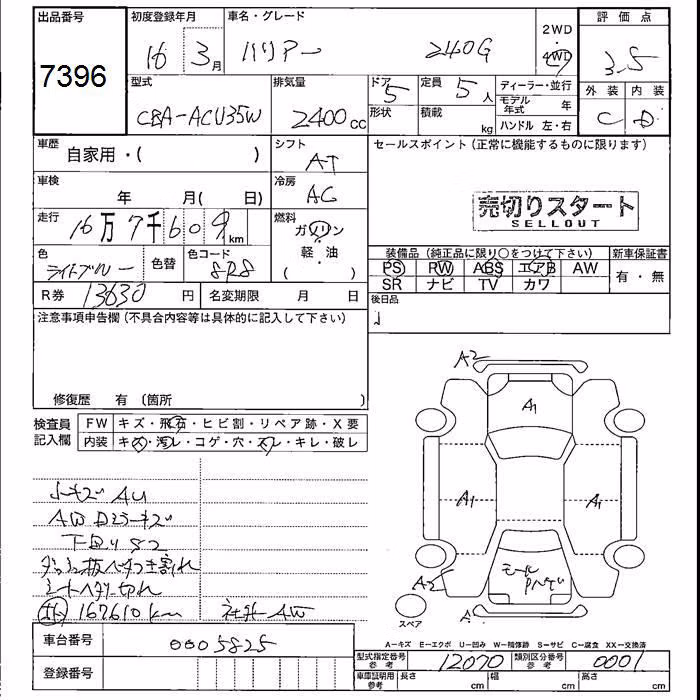 出品番号 初度登録年月 車名・グレード 2WD 評価点
7396 16 3月 ハリアー 240G 4WD 3.5
型式 排気量 ドア 5 定員 5人 ディーラー・並行 外装 内装
CBA-ACU35W 2400cc 形状 積載 kg モデル年式 年 C D
ハンドル 左・右
車歴 自家用・( ) シフト AT セールスポイント(正常に機能するものに限ります)
車検 年 月( 日) 冷房 AC
売切りスタート
SELLOUT
走行 16万7千609km 燃料 ガソリン・軽・油 ( )
色 ライトブルー 色替 色コード 8R8
装備品(純正品に限り○をつけて下さい) 新車保証書
PS PW ABS エアB AW 有・無
SR ナビ TV カワ
R券 13630円 名変期限 月 日 後日品
注意事項申告欄(不具合内容等は具体的に記入して下さい)
修復歴 有 (箇所 )
検査員記入欄 FW キズ・飛石・ヒビ割・リペア跡・X要
内装 キズ・汚レ・コゲ・穴・スレ・キレ・破レ
小キズ AU
AW Dミラーキズ
下回り S2
ダッシュ板ベタつき割れ
シートヘタリ切れ
167610km 社外AW
A2
A1
A1
A1
モール
A2
スペア
A-キズ E-エクボ U-凹み W-補修跡 S-サビ C-腐食 XX-交換済
車台番号 0005825
型式指定番号 参考 12070 類別区分番号 参考 0001
登録番号
車庫証明用 参考 長さ cm 幅 cm 高さ cm